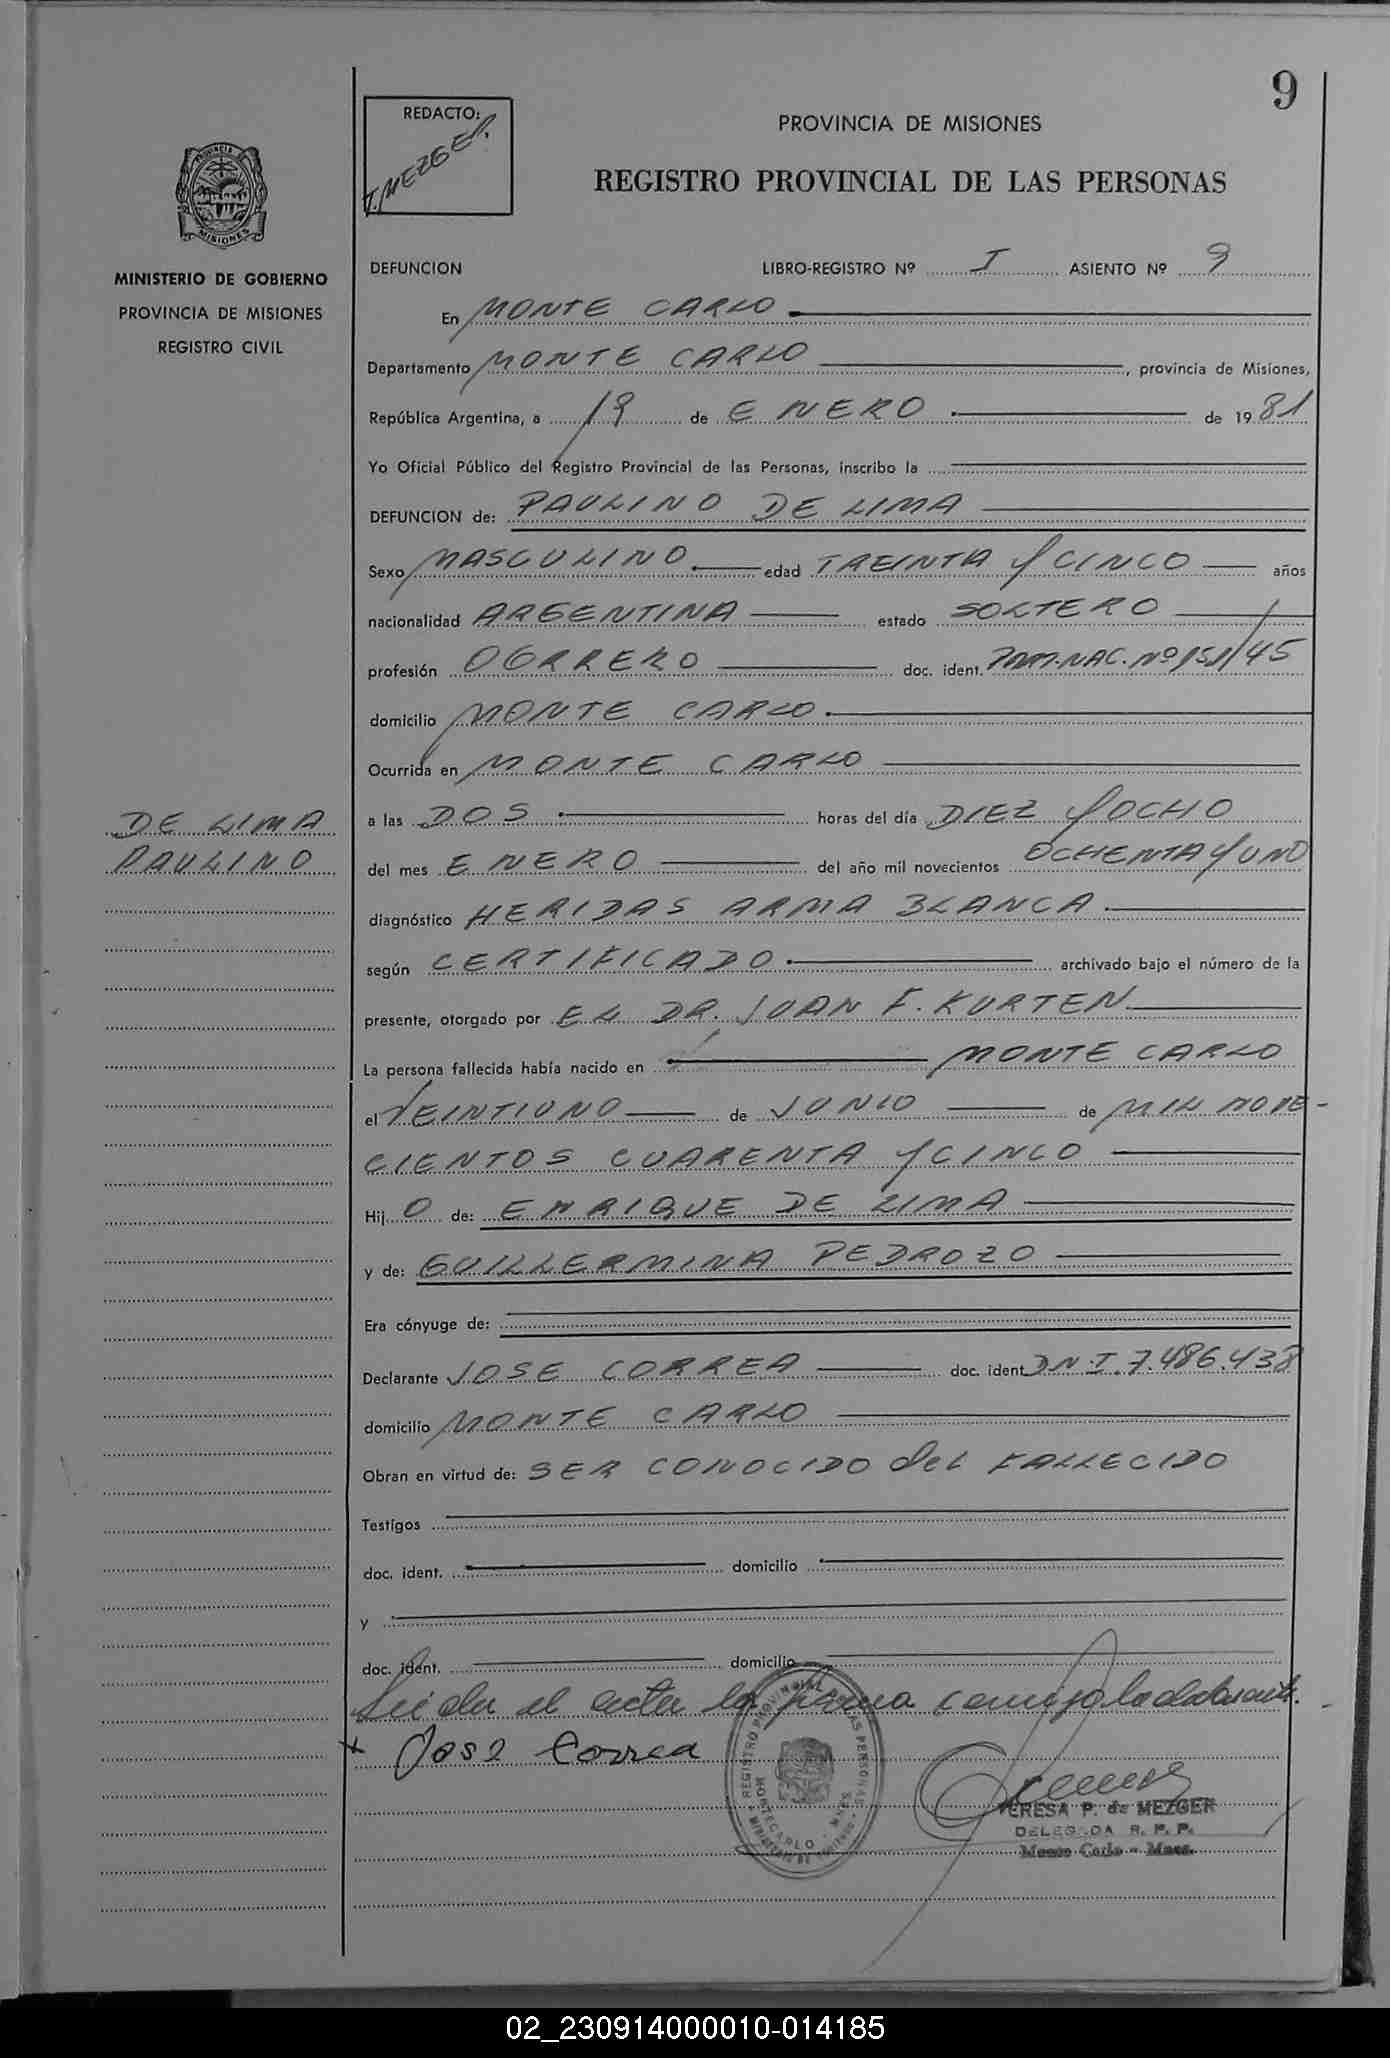 9
REDACTO:
T. MEZGER.
PROVINCIA DE MISIONES
REGISTRO PROVINCIAL DE LAS PERSONAS
PROVINCIA DE
MISIONES
MINISTERIO DE GOBIERNO
PROVINCIA DE MISIONES
REGISTRO CIVIL
DEFUNCION LIBRO-REGISTRO Nº I ASIENTO Nº 9
En MONTE CARLO
Departamento MONTE CARLO, provincia de Misiones,
República Argentina, a 19 de ENERO de 1981
Yo Oficial Público del Registro Provincial de las Personas, inscribo la
DEFUNCION de: PAULINO DE LIMA
Sexo MASCULINO edad TREINTA Y CINCO años
nacionalidad ARGENTINA estado SOLTERO
profesión OBRRERO doc. ident. PART. NAC. Nº 151/45
domicilio MONTE CARLO
Ocurrida en MONTE CARLO
a las DOS horas del día DIEZ Y OCHO
DE LIMA
PAULINO
del mes ENERO del año mil novecientos OCHENTA Y UNO
diagnóstico HERIDAS ARMA BLANCA
según CERTIFICADO archivado bajo el número de la
presente, otorgado por EL DR. JUAN F. KURTEN
La persona fallecida había nacido en MONTE CARLO
el VEINTIUNO de JUNIO de MIL NOVE-
CIENTOS CUARENTA Y CINCO
Hij O de: ENRIQUE DE LIMA
y de: GUILLERMINA PEDROZO
Era cónyuge de:
Declarante JOSE CORREA doc. ident D.N.I. 7.486.438
domicilio MONTE CARLO
Obran en virtud de: SER CONOCIDO del FALLECIDO
Testigos
doc. ident. domicilio
y
doc. ident. domicilio
Leida el acta la firma conmigo la declarante.
x Jose Correa
REGISTRO PROVINCIAL DE LAS PERSONAS
MONTECARLO - MNES.
TERESA P. de MEZGER
DELEGADA R. P. P.
Monte Carlo - Mnes.
02_230914000010-014185